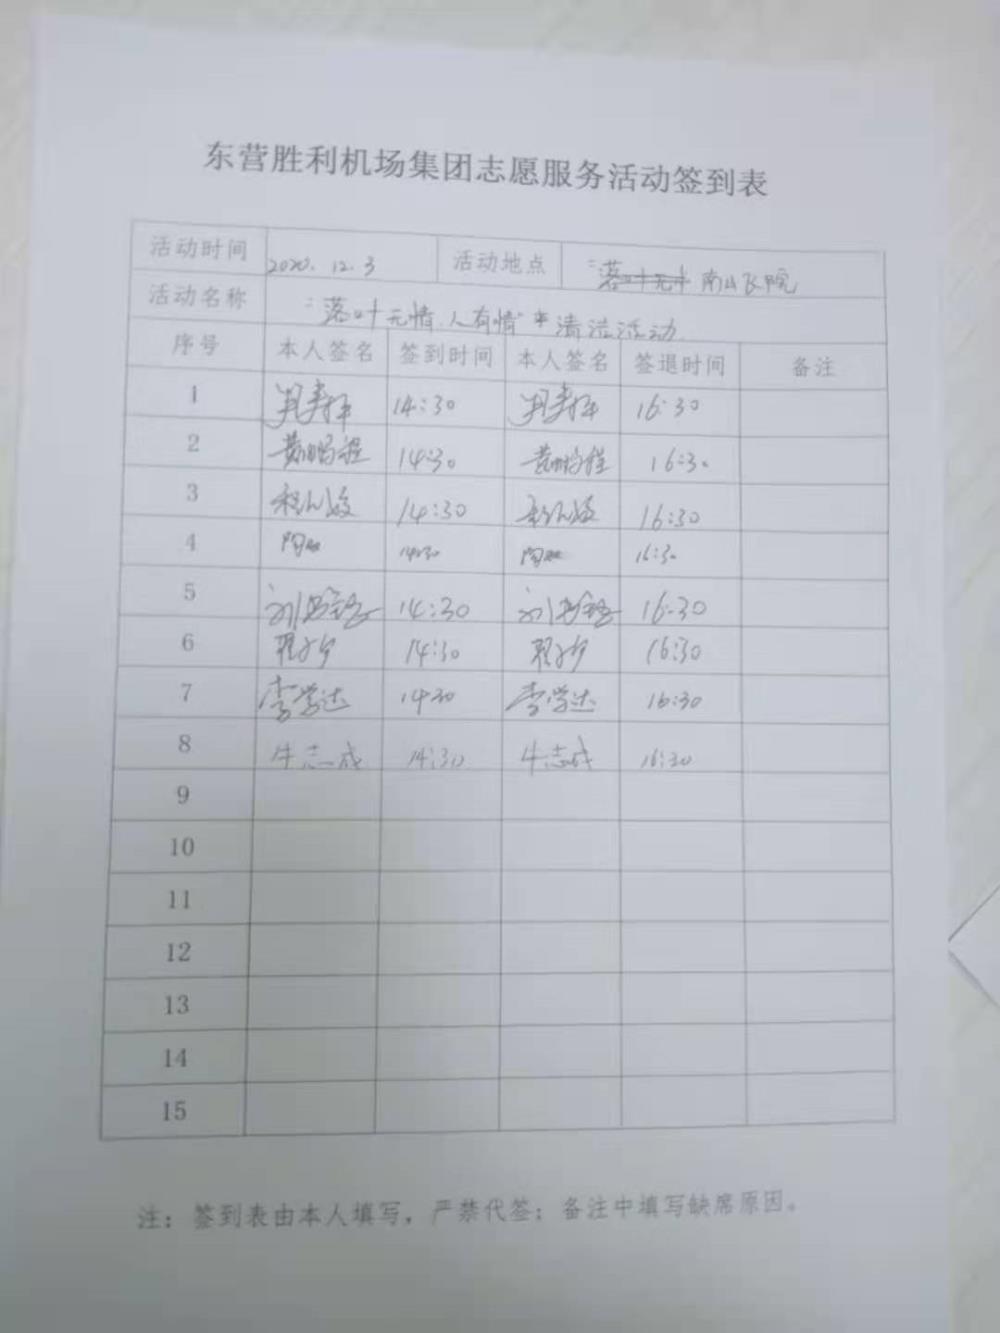 东营胜利机场集团志愿服务活动签到表
活动时间 2020.12.3 活动地点 南山飞院
活动名称 "落叶无情,人有情" 清洁活动
序号 本人签名 签到时间 本人签名 签退时间 备注
1 14:30 16:30
2 黄鹏程 14:30 黄鹏程 16:30
3 14:30 16:30
4 14:30 16:30
5 14:30 16:30
6 14:30 16:30
7 李学达 14:30 李学达 16:30
8 牛志成 14:30 牛志成 16:30
9
10
11
12
13
14
15
注：签到表由本人填写，严禁代签；备注中填写缺席原因。